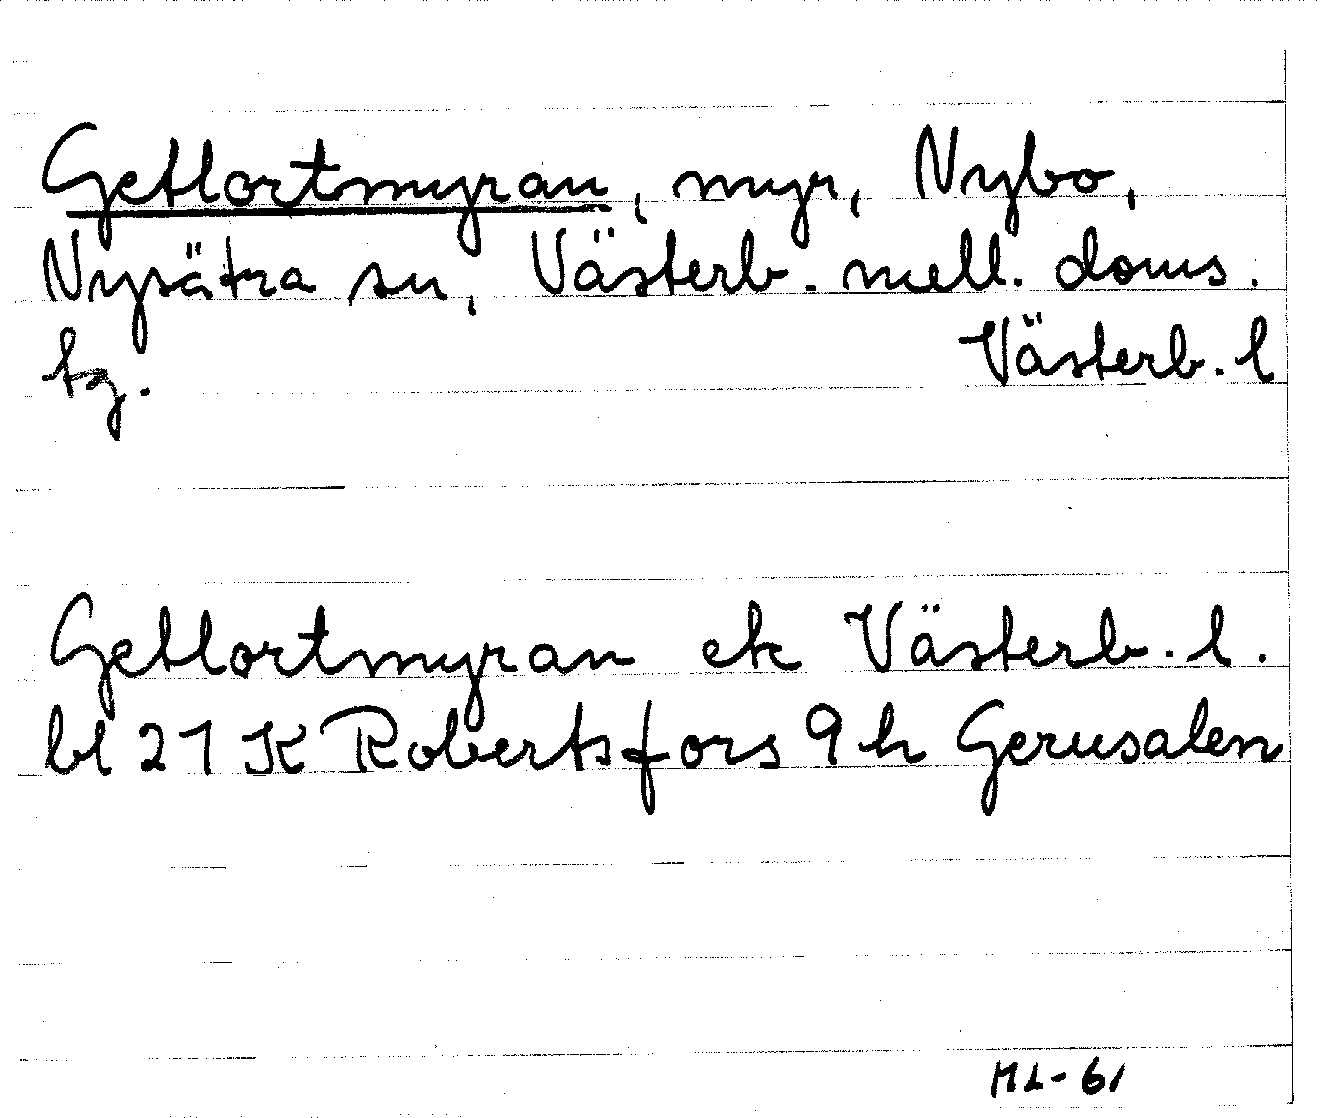 Getlortmyran, myr, Nybo,
Nysätra sn, Västerb. mell. doms.
tg. Västerb. l
Getlortmyran ek Västerb. l.
bl 21 K Robertsfors 9 h Gerusalen
ML-61